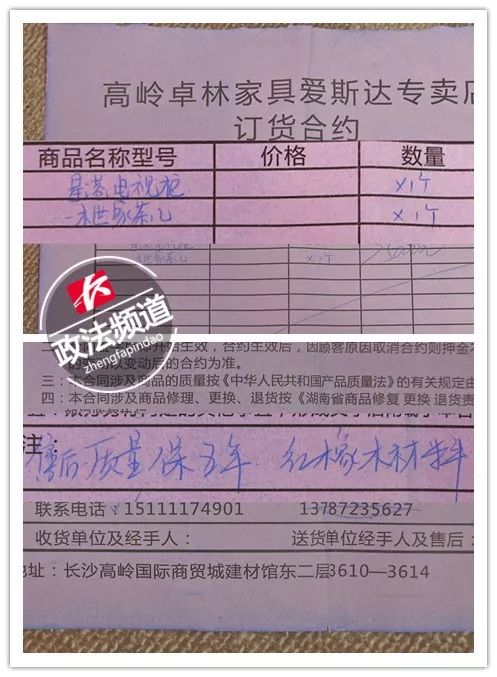 高岭卓林家具爱斯达专卖店
订货合约
商品名称型号 价格 数量
电视柜 ×1个
一木世家茶几 ×1个
政法频道
zhengfapindao
开始生效，合约生效后，因顾客原因取消合约则押金不
的变动以变动后的合约为准。
三：本合同涉及商品的质量按《中华人民共和国产品质量法》的有关规定由
四：本合同涉及商品修理、更换、退货按《湖南省商品修复 更换 退货责
注：
售后.质量保五年. 红橡木材料
联系电话：15111174901 13787235627
收货单位及经手人： 送货单位及经手人及售后：
地址：长沙高岭国际商贸城建材馆东二层3610—3614